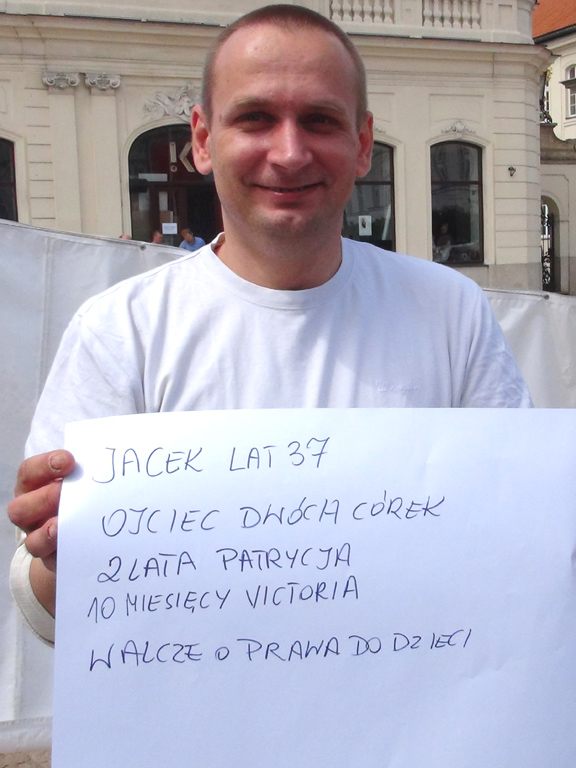 JACEK LAT 37
OJCIEC DWÓCH CÓREK
2 LATA PATRYCJA
10 MIESIĘCY VICTORIA
WALCZE O PRAWA DO DZIECI